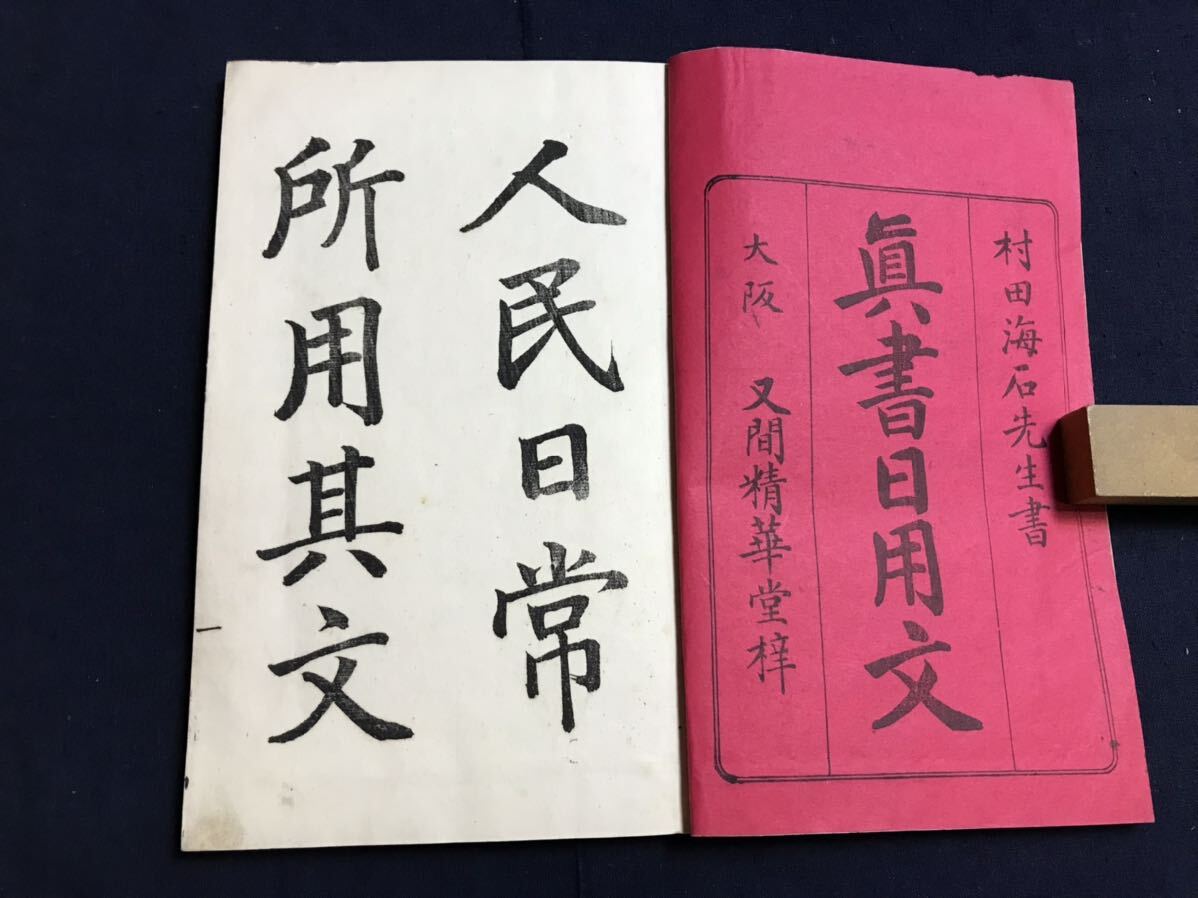 村田海石先生書
眞書日用文
大阪 又間精華堂梓
人民日常
所用其文
一